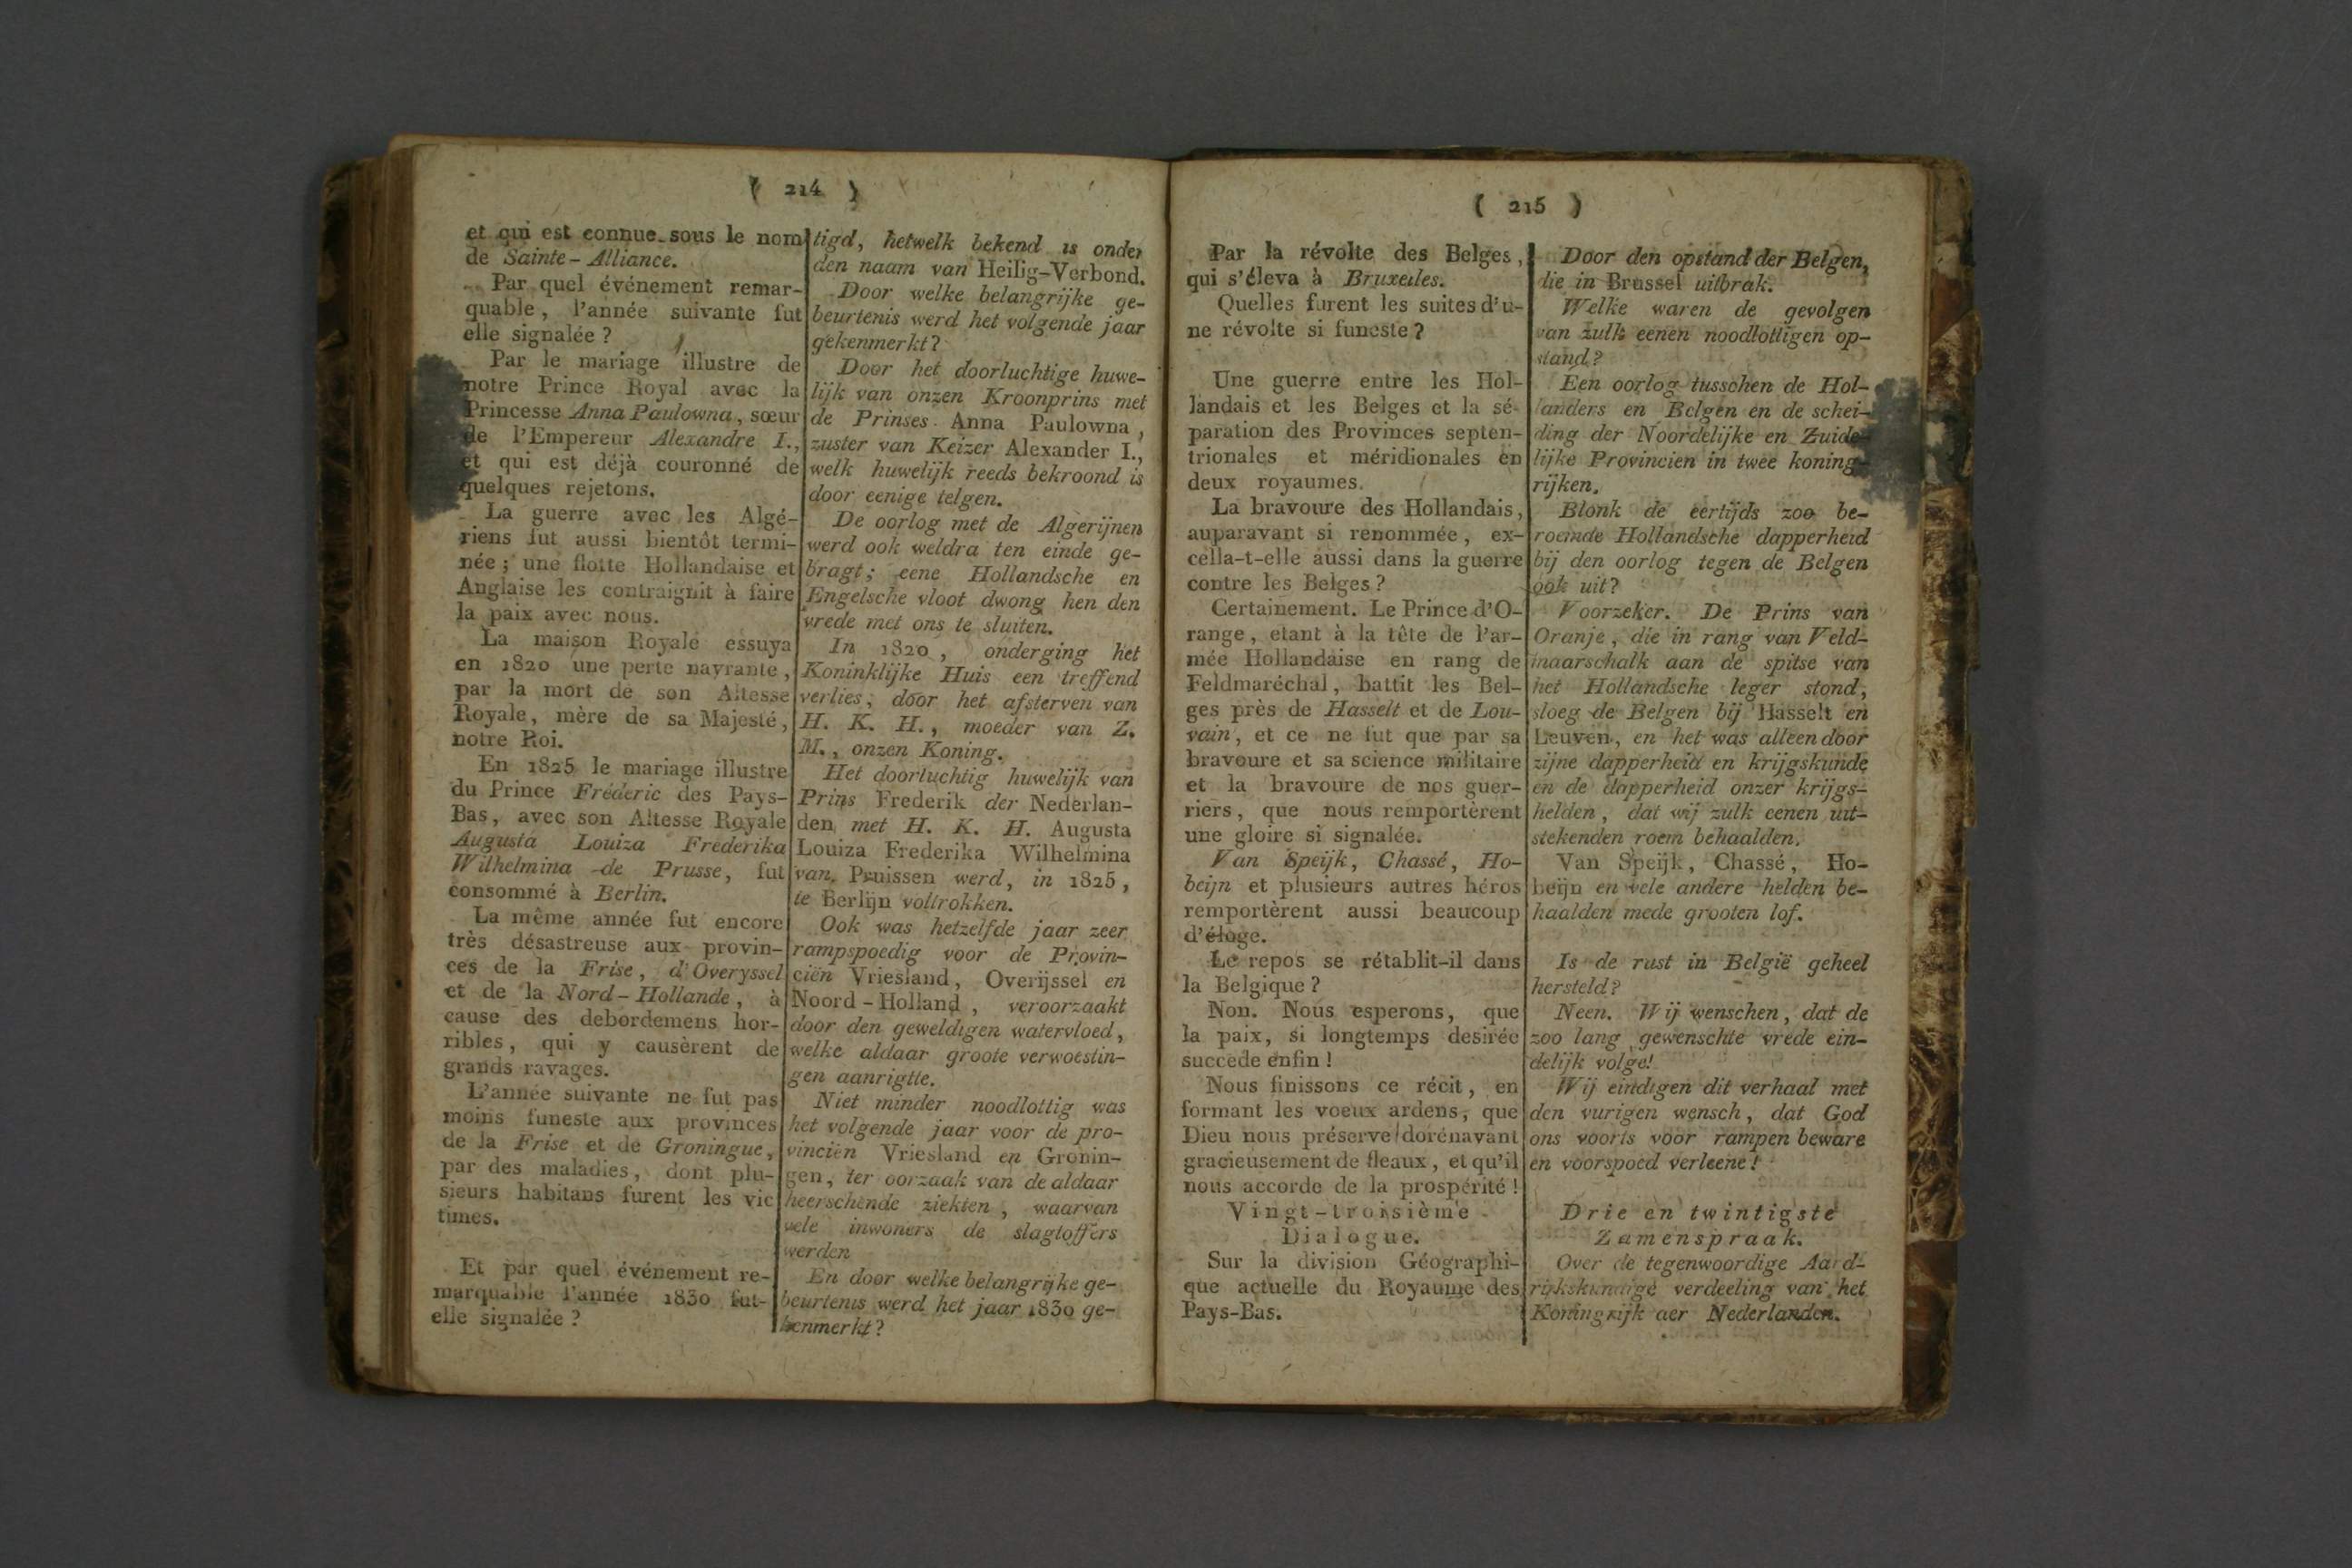 ( 214 )
et qui est connue sous le nom
de Sainte-Alliance.
Par quel événement remar-
quable, l'année suivante fut
elle signalée ?
Par le mariage illustre de
notre Prince Royal avec la
Princesse Anna Paulowna, sœur
de l'Empereur Alexandre I.,
et qui est déjà couronné de
quelques rejetons.
La guerre avec les Algé-
riens fut aussi bientôt termi-
née ; une flotte Hollandaise et
Anglaise les contraignit à faire
la paix avec nous.
La maison Royale essuya
en 1820 une perte navrante,
par la mort de son Altesse
Royale, mère de sa Majesté,
notre Roi.
En 1825 le mariage illustre
du Prince Fréderic des Pays-
Bas, avec son Altesse Royale
Augusta Louiza Frederika
Wilhelmina de Prusse, fut
consommé à Berlin.
La même année fut encore
très désastreuse aux provin-
ces de la Frise, d'Overyssel
et de la Nord-Hollande, à
cause des debordemens hor-
ribles, qui y causèrent de
grands ravages.
L'année suivante ne fut pas
moins funeste aux provinces
de la Frise et de Groningue,
par des maladies, dont plu-
sieurs habitans furent les vic
times.
Et par quel événement re-
marquable l'année 1830 fut-
elle signalée ?
tigd, hetwelk bekend is onder
den naam van Heilig-Verbond.
Door welke belangrijke ge-
beurtenis werd het volgende jaar
gekenmerkt?
Door het doorluchtige huwe-
lijk van onzen Kroonprins met
de Prinses Anna Paulowna,
zuster van Keizer Alexander I.,
welk huwelijk reeds bekroond is
door eenige telgen.
De oorlog met de Algerijnen
werd ook weldra ten einde ge-
bragt; eene Hollandsche en
Engelsche vloot dwong hen den
vrede met ons te sluiten.
In 1820, onderging het
Koninklijke Huis een treffend
verlies, door het afsterven van
H. K. H., moeder van Z.
M., onzen Koning.
Het doorluchtig huwelijk van
Prins Frederik der Nederlan-
den met H. K. H. Augusta
Louiza Frederika Wilhelmina
van Pruissen werd, in 1825,
te Berlijn voltrokken.
Ook was hetzelfde jaar zeer
rampspoedig voor de Provin-
ciën Vriesland, Overijssel en
Noord-Holland, veroorzaakt
door den geweldigen watervloed,
welke aldaar groote verwoestin-
gen aanrigtte.
Niet minder noodlottig was
het volgende jaar voor de pro-
vinciën Vriesland en Gronin-
gen, ter oorzaak van de aldaar
heerschende ziekten, waarvan
vele inwoners de slagtoffers
werden
En door welke belangrijke ge-
beurtenis werd het jaar 1830 ge-
kenmerkt?
( 215 )
Par la révolte des Belges,
qui s'éleva à Bruxelles.
Quelles furent les suites d'u-
ne révolte si funeste ?
Une guerre entre les Hol-
landais et les Belges et la sé-
paration des Provinces septen-
trionales et méridionales en
deux royaumes.
La bravoure des Hollandais,
auparavant si renommée, ex-
cella-t-elle aussi dans la guerre
contre les Belges ?
Certainement. Le Prince d'O-
range, etant à la tête de l'ar-
mée Hollandaise en rang de
Feldmaréchal, battit les Bel-
ges près de Hasselt et de Lou-
vain, et ce ne fut que par sa
bravoure et sa science militaire
et la bravoure de nos guer-
riers, que nous remportèrent
une gloire si signalée.
Van Speijk, Chassé, Ho-
beijn et plusieurs autres héros
remportèrent aussi beaucoup
d'éloge.
Le repos se rétablit-il dans
la Belgique ?
Non. Nous esperons, que
la paix, si longtemps desirée
succede enfin !
Nous finissons ce récit, en
formant les voeux ardens, que
Dieu nous préserve dorénavant
gracieusement de fleaux, et qu'il
nous accorde de la prospérité !
Vingt-troisième
Dialogue.
Sur la division Géographi-
que actuelle du Royaume des
Pays-Bas.
Door den opstand der Belgen,
die in Brussel uitbrak.
Welke waren de gevolgen
van zulk eenen noodlottigen op-
stand?
Een oorlog tusschen de Hol-
landers en Belgen en de schei-
ding der Noordelijke en Zuide-
lijke Provincien in twee koning-
rijken.
Blonk de eertijds zoo be-
roemde Hollandsche dapperheid
bij den oorlog tegen de Belgen
ook uit?
Voorzeker. De Prins van
Oranje, die in rang van Veld-
maarschalk aan de spitse van
het Hollandsche leger stond,
sloeg de Belgen bij Hasselt en
Leuven, en het was alleen door
zijne dapperheid en krijgskunde
en de dapperheid onzer krijgs-
helden, dat wij zulk eenen uit-
stekenden roem behaalden.
Van Speijk, Chassé, Ho-
beijn en vele andere helden be-
haalden mede grooten lof.
Is de rust in België geheel
hersteld?
Neen. Wij wenschen, dat de
zoo lang gewenschte vrede ein-
delijk volge!
Wij eindigen dit verhaal met
den vurigen wensch, dat God
ons voorts voor rampen beware
en voorspoed verleene!
Drie en twintigste
Zamenspraak.
Over de tegenwoordige Aard-
rijkskundige verdeeling van het
Koningrijk der Nederlanden.